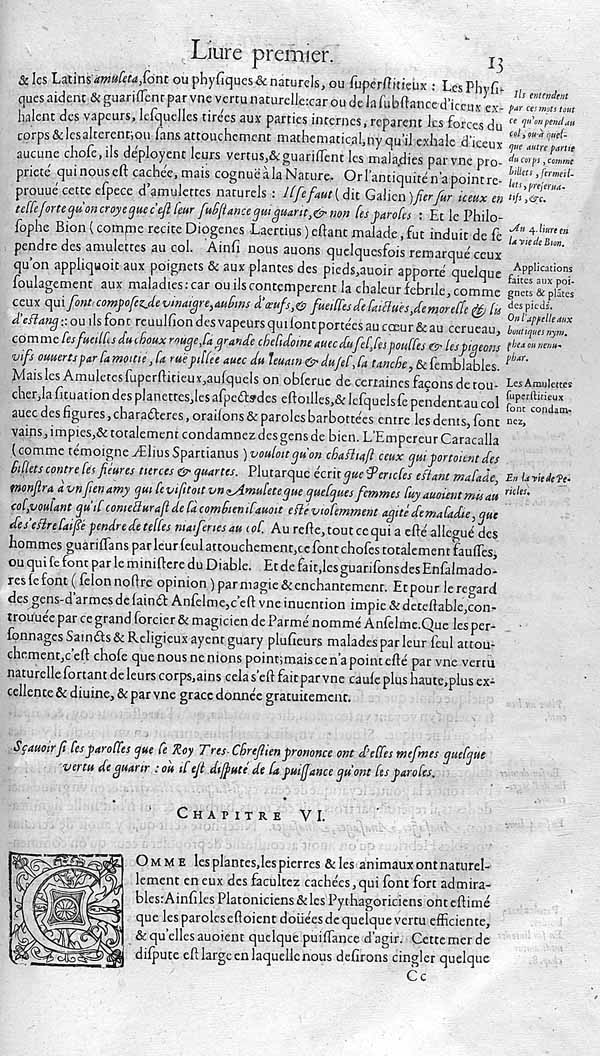 Liure premier.
13
& les Latins amuleta, sont ou physiques & naturels, ou superstitieux : Les Physi-
ques aident & guarissent par vne vertu naturelle: car ou de la substance d'iceux ex-
halent des vapeurs, lesquelles tirées aux parties internes, reparent les forces du
corps & les alterent; ou sans attouchement mathematical, ny qu'il exhale d'iceux
aucune chose, ils déployent leurs vertus, & guarissent les maladies par vne pro-
prieté qui nous est cachée, mais cognuë à la Nature. Or l'antiquité n'a point re-
prouué cette espece d'amulettes naturels : Il se faut ( dit Galien ) fier sur iceux en
telle sorte qu'on croye que c'est leur substance qui guarit, & non les paroles : Et le Philo-
sophe Bion ( comme recite Diogenes Laertius ) estant malade, fut induit de se
pendre des amulettes au col. Ainsi nous auons quelquesfois remarqué ceux
qu'on appliquoit aux poignets & aux plantes des pieds, auoir apporté quelque
soulagement aux maladies: car ou ils contemperent la chaleur febrile, comme
ceux qui sont composez de vinaigre, aubins d'œufs, & fueilles de laictuës, de morelle & lis
d'estang:: ou ils font reuulsion des vapeurs qui sont portées au cœur & au cerueau,
comme les fueilles du choux rouge, la grande chelidoine auec du sel, les poulles & les pigeons
vifs ouuerts par la moitie, la ruë pillée auec du leuain & du sel, la tanche, & semblables.
Mais les Amuletes superstitieux, ausquels on obserue de certaines façons de tou-
cher, la situation des planettes, les aspects des estoilles, & lesquels se pendent au col
auec des figures, characteres, oraisons & paroles barbottées entre les dents, sont
vains, impies, & totalement condamnez des gens de bien. L'Empereur Caracalla
( comme témoigne Ælius Spartianus ) vouloit qu'on chastiast ceux qui portoient des
billets contre les fieures tierces & quartes. Plutarque écrit que Pericles estant malade,
monstra à vn sien amy qui le visitoit vn Amulete que quelques femmes luy auoient mis au
col, voulant qu'il coniecturast de là combien il auoit esté violemment agité de maladie, que
de s'estre laissé pendre de telles niaiseries au col. Au reste, tout ce qui a esté allegué des
hommes guarissans par leur seul attouchement, ce sont choses totalement fausses,
ou qui se font par le ministere du Diable. Et de fait, les guarisons des Ensalmado-
res se font ( selon nostre opinion ) par magie & enchantement. Et pour le regard
des gens-d'armes de sainct Anselme, c'est vne inuention impie & detestable, con-
trouuée par ce grand sorcier & magicien de Parme nommé Anselme. Que les per-
sonnages Saincts & Religieux ayent guary plusieurs malades par leur seul attou-
chement, c'est chose que nous ne nions point; mais ce n'a point esté par vne vertu
naturelle sortant de leurs corps, ains cela s'est fait par vne cause plus haute, plus ex-
cellente & diuine, & par vne grace donnée gratuitement.
Ils entendent
par ces mots tout
ce qu'on pend au
col, ou à quel-
que autre partie
du corps, comme
billets,
lets, preserua-
tifs, &c.
Au 4. liure en
la vie de Bion.
Applications
faites aux poi-
gnets & plātes
des pieds.
On l'appelle aux
boutiques nym-
phea ou nenu-
phar.
Les Amulettes
superstitieux
sont condam-
nez,
En la vie de Pe-
ricles.
Sçauoir si les parolles que le Roy Tres-Chrestien prononce ont d'elles mesmes quelque
vertu de guarir : où il est disputé de la puissance qu'ont les paroles.
CHAPITRE VI.
COMME les plantes, les pierres & les animaux ont naturel-
lement en eux des facultez cachées, qui sont fort admira-
bles: Ainsi les Platoniciens & les Pythagoriciens ont estimé
que les paroles estoient doüées de quelque vertu efficiente,
& qu'elles auoient quelque puissance d'agir. Cette mer de
dispute est large en laquelle nous desirons cingler quelque
Cc